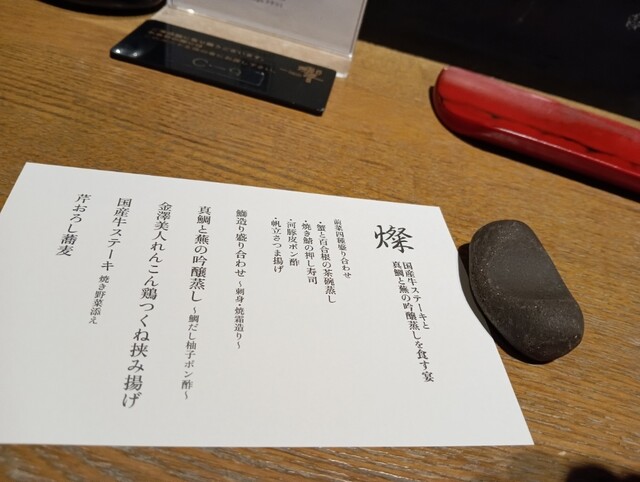 燦
国産牛ステーキと
真鯛と蕪の吟醸蒸しを食す宴
前菜四種盛り合わせ
・蟹と百合根の茶碗蒸し
・焼き鯖の押し寿司
・河豚皮ポン酢
・帆立さつま揚げ
鰤造り盛り合わせ ～刺身・焼霜造り～
真鯛と蕪の吟醸蒸し ～鯛だし柚子ポン酢～
金澤美人れんこん鶏つくね挟み揚げ
国産牛ステーキ 焼き野菜添え
芹おろし蕎麦